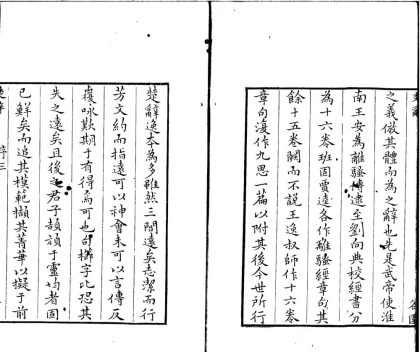 之義倣其體而為之辭也先是武帝使淮
南王安為離騷傳逮至劉向典校經書分
為十六卷班固賈逵各作離騷經章句其
餘十五卷闕而不說王逸叔師作十六卷
章句復作九思一篇以附其後今世所行
楚辭逸本為多雖然三閭遠矣志潔而行
芳文約而指遠可以神會未可以言傳反
覆咏歎期于有得焉可也句櫛字比恐其
失之遠矣且後之君子頡頏于靈均者固
已鮮矣而追其模範擷其菁華以擬于前
序三